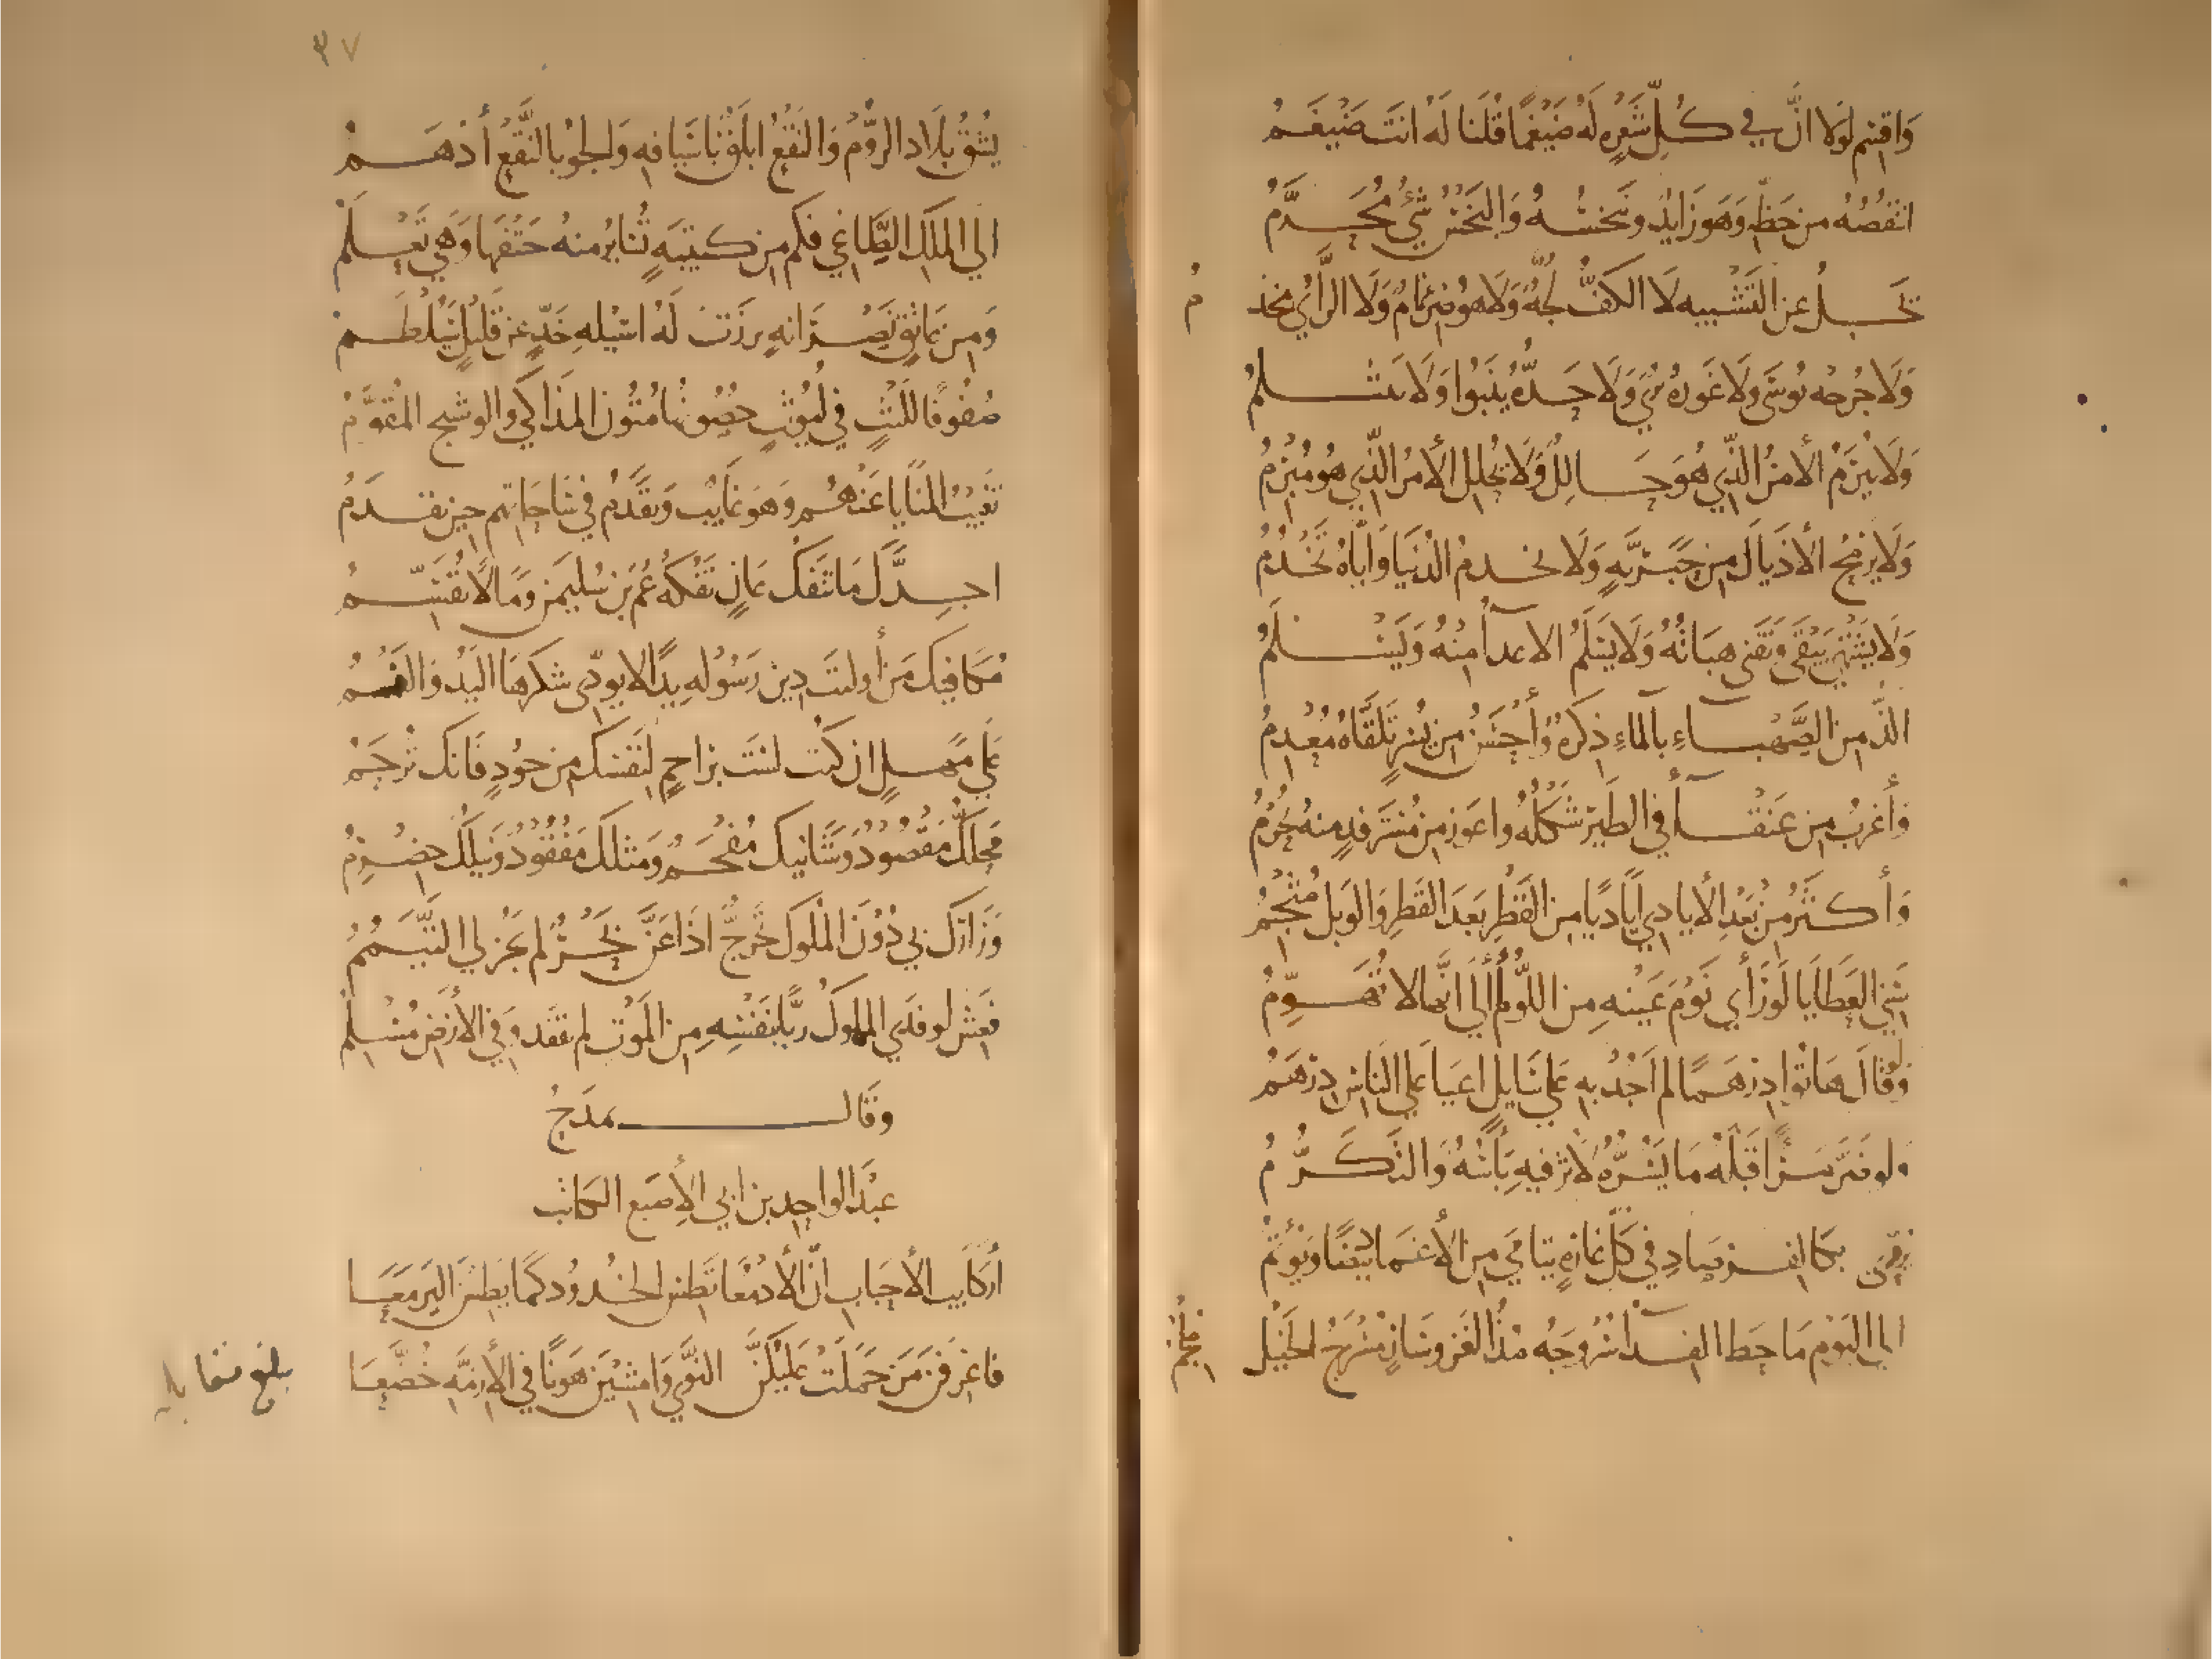 وَاقسِم لَولَا انَّ في كُلِّ شَعرِه لَهُ ضَيغمًا قُلنا لَهُ انتَ ضَيغَمُ
اتنقُصُه من حَظِّه وَهوَ زَايدٌ ونَبخسُه وَالبَخسُ شَيٌ مُحَرَّمُ
تَجِلُّ عن التَشبيه لَا الكَفُّ لُجَّةٌ وَلَا هو ضِرغَامٌ وَلَا الرَّأيُ مخذمُ
وَلَا جُرحُه يُوسَى وَلَا غَورُهُ يُرَى وَلَا حَدُّهُ يَنبُوا وَلَا يتثلمُ
وَلَا يُبرَمُ الأَمرُ الَّذي هُوَ حَالِلٌ وَلَا يُحلل الأمرُ الَّذي هُو مُبرِمُ
وَلَا يَرمَحُ الأذيَالَ مِن جَبَريَّةٍ وَلَا يخدمُ الدُنيَا وَايّاهُ تَخدُمُ
وَلَا يَشتَهي يَبقَى وَتَفنى هِبَاتُهُ وَلَا يَسلَمُ الاعدآ منهُ وَيَسلَمُ
الذُّ من الصَّهباءِ بالماءِ ذِكرُهُ وَأحسَنُ من يُسرٍ تَلَقَّاهُ مُعدِمُ
وَأغربُ من عَنقآ في الطَيرِ شَكلُهُ واعوَز من مُستَرفدٍ منه يُحرَمُ
وَأكثَرُ من بَعدِ الأيادي أيَادِيًا من القَطرِ بَعدَ القَطرِ وَالوَبل مُثجِمُ
سَنِيُّ العَطَايَا لَو رَأى نَومَ عَينِهِ مِن اللُّومِ آلى انَّهَا لا تُهَوِّمُ
وَلَو قَالَ هَاتُوا دِرهَمًا لم أجُد بِهِ عَلى سَايلٍ اعيَا عَلى النَاسِ دِرهَمُ
ولو ضَرَّ مَرءًا قَبلَهُ مَا يَسُرُّهُ لَأثر فيهِ بَأسُهُ وَالتَكَرُّمُ
يُروّى بكالفرصادِ في كلِّ غَارَةٍ يتَامَى مِن الأغمَادِ بِيضًا ويُوتِمُ
الى اليَومِ مَا حطَّ الفدآ سُرُوجَه مذ الغَزوُ سَارٍ مُسرَجُ الخَيلِ
مُلجَمُ
٣٧
يَشُقُّ بلَادَ الرُّومِ وَالنَقعُ ابلَقٌ بأسيَافِهِ وَالجَوُّ بالنَّقعِ أدهَمُ
الى المَلِكِ الطَّاغي فكم مِن كتيبَةٍ تُسَايرُ منه حَتفَها وَهي تَعلَمُ
وَمِن عَاتقٍ نَصرَانةٍ برزَت لَهُ اسيلةِ خَدٍّ عَن قَليلٍ سَيُلطَمُ
صُفُوفًا للَيثٍ في لُيُوثٍ حصُونُها مُتُونُ المَذَاكي والوَشيج المُقَوَّمُ
تَغيبُ المنايَا عَنهُم وَهوَ غَايبٌ وَتَقدَمُ في سَاحَاتهم حين يقدَمُ
اجِدَّكَ مَا تَنفَكُّ عَانٍ تَفُكُّهُ عُمَ بنَ سُليمَن وَمَالًا تُقَسِّمُ
مُكَافِيكَ مَن أوليتَ دينَ رَسُولِهِ يدًا لا يودّي شكرَهَا اليَدُ وَالفَمُ
عَلى مَهلٍ ان كُنتَ لستَ بِرَاحِمٍ لِنَفسكَ من جُودٍ فَانكَ تُرحَمُ
مَحَلُّكَ مَقصُودٌ وَشَانيكَ مُفحَمٌ وَمثلكَ مَفقُودٌ وَنَيلُكَ خِضرِمُ
وَزَارَكَ بي دُونَ المُلُوك تَحَرُّجٌ اذَا عَنَّ بَحرٌ لم يَجُز لي التَّيَمُّمُ
فَعِش لو فَدَى المملوكُ رَبًّا بنَفسِهِ مِن المَوتِ لم تُفقَد وَفي الأرضِ مُسلِمُ
وقال يمدَحُ
عبدَ الواحد بن ابي الأصبع الكاتب
أركَايبَ الأحبَابِ انّ الأدمُعَا تَطِسُ الخُدُودَ كمَا يَطِسنَ اليَرمَعَا
فاعرِفنَ مَن حَمَلَت عَليكُنَّ النَوى وَامشينَ هَونًا في الأزِمَّةِ خُضَّعَا
بلغ مقابله